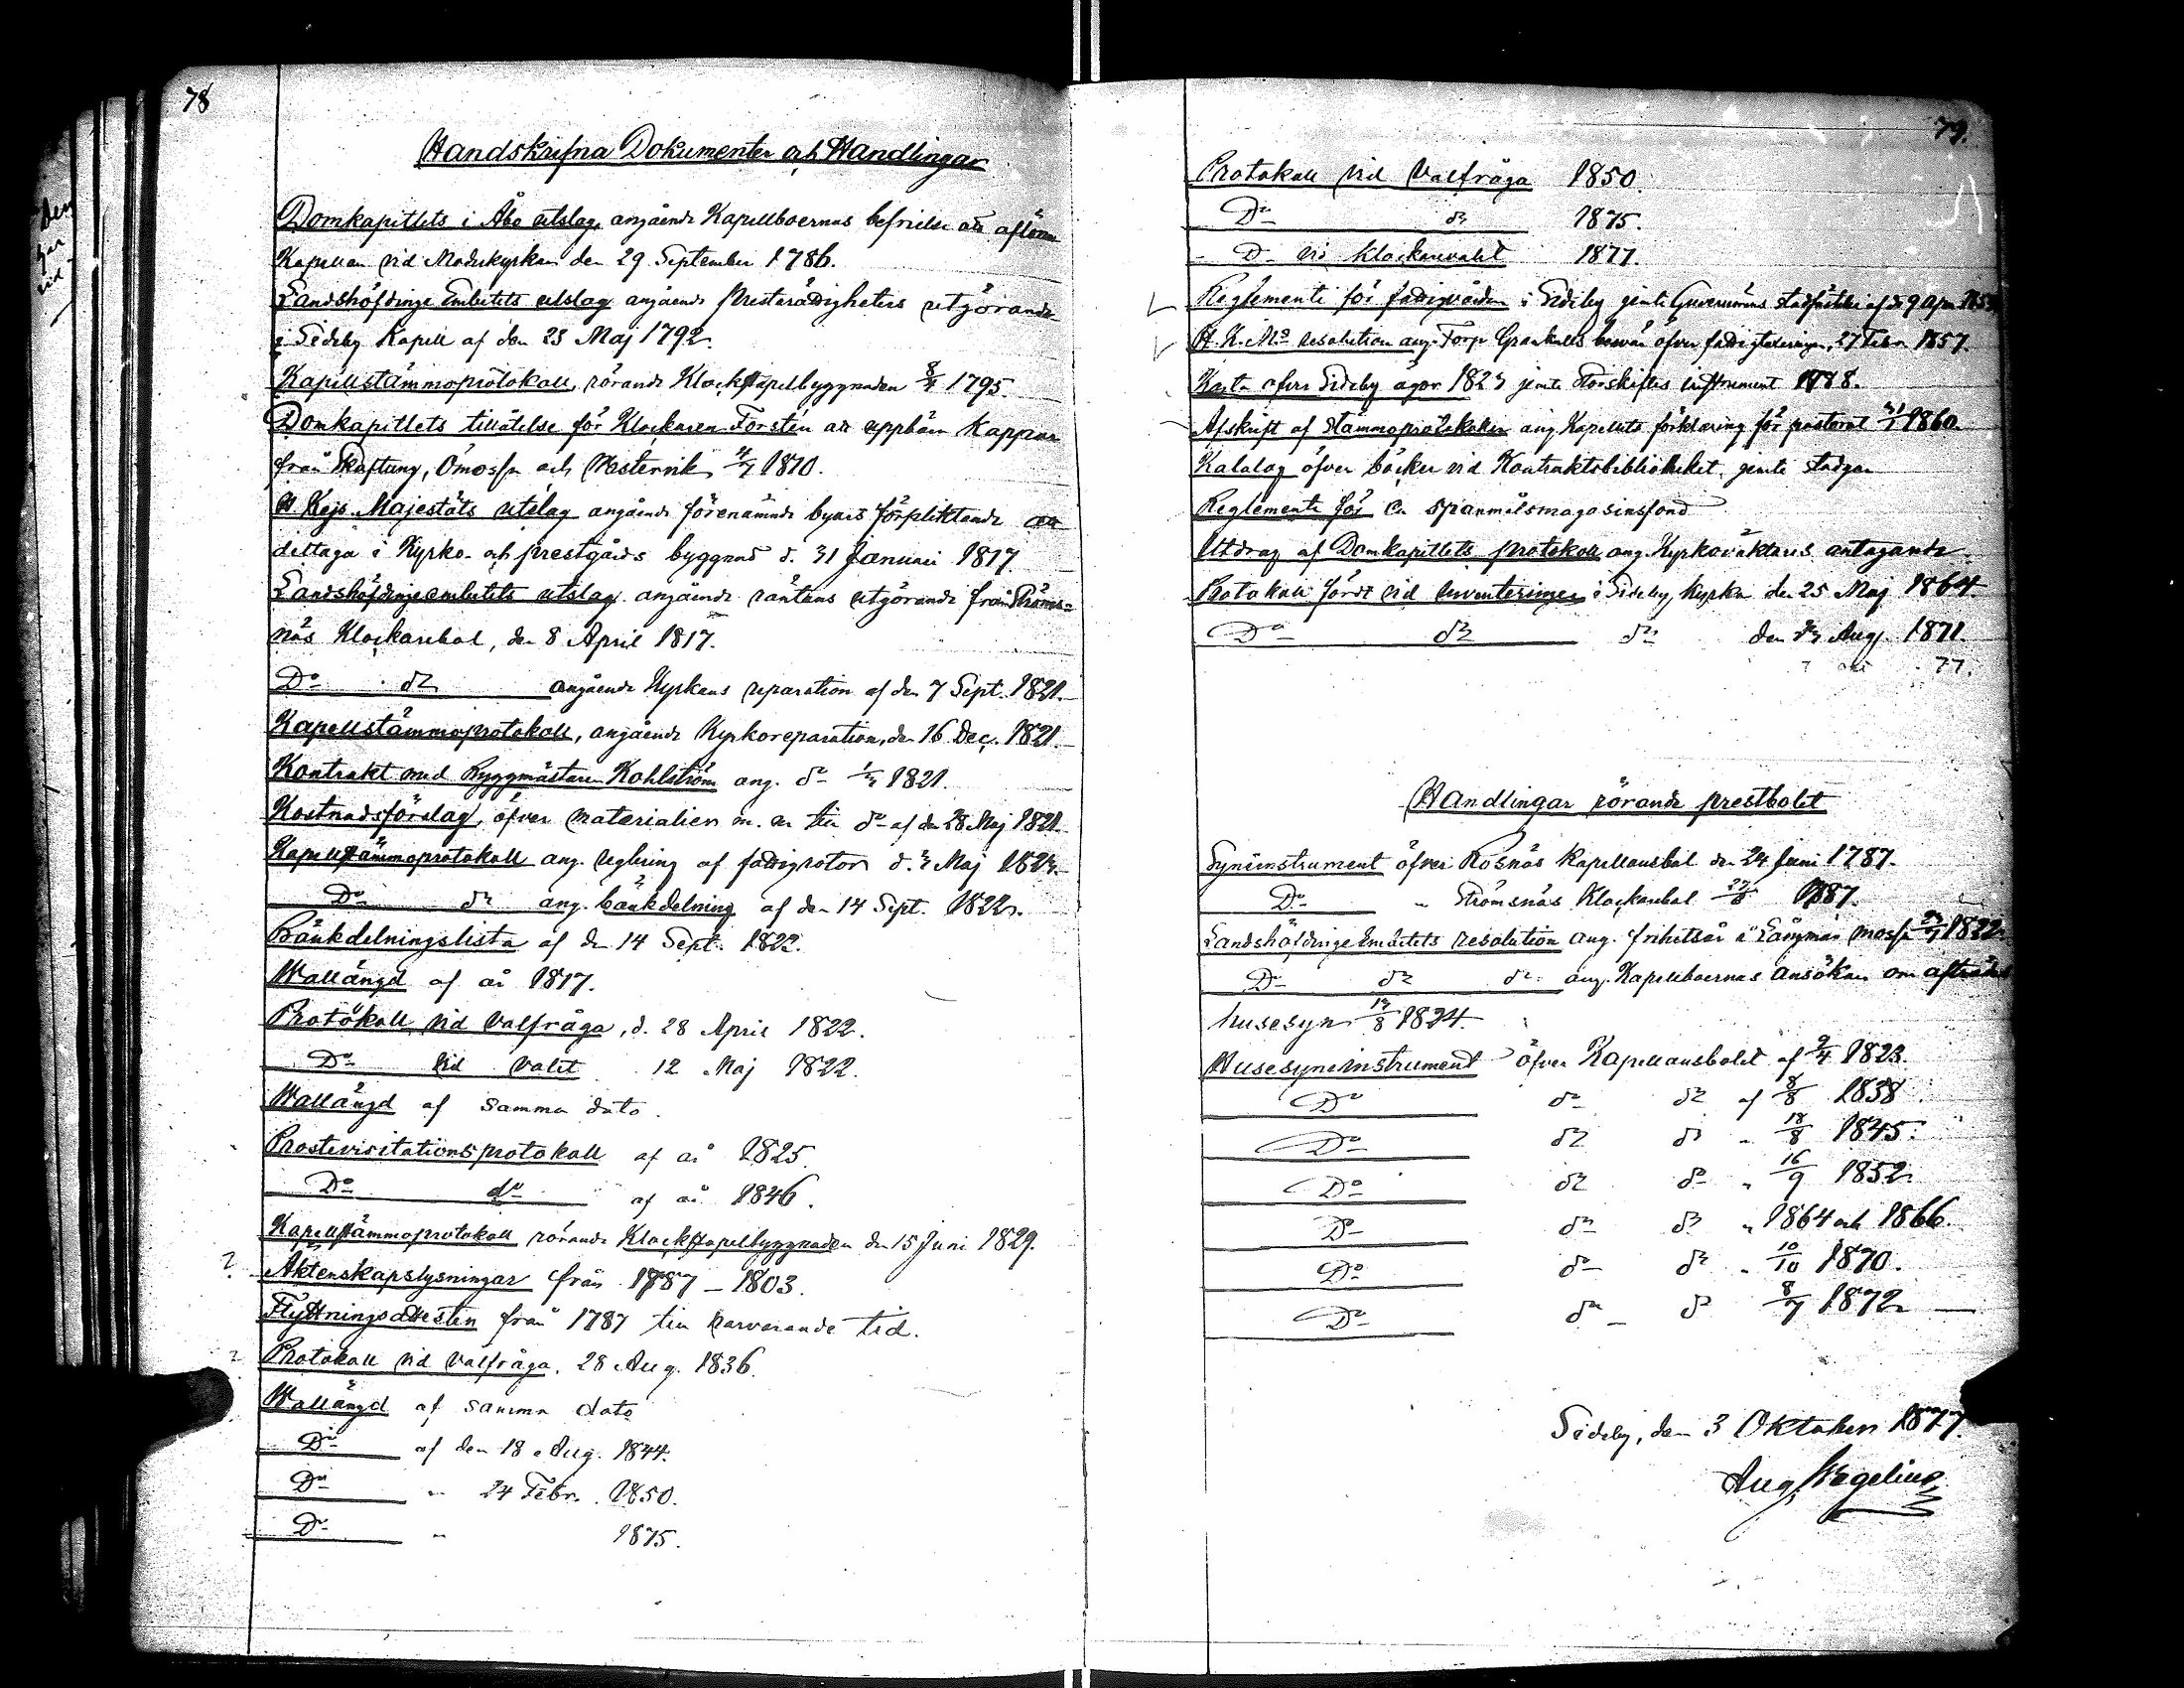 78
Handskrifna Dokumenter och Handlingar
Domkapitlets i Åbo utslag, angående Kapellboernas befrielse att aflöna
Kapellan vid Moderkyrkan den 29 September 1786.
Landshöfdinge Embetets utslag angående Prestarättigheters utgörande
i Sideby Kapell af den 23 Maj 1792.
Kapellstämmoprotokoll, rörande Klockstapelbyggnaden 8/4 1795.
Domkapitlets tillåtelse för Klockaren Forstén att uppbära Kappar
från Skaftung, Ömossa och Westervik 1810.
H. Kejs. Majestäts utslag angående förenämnde byars förpliktande att
deltaga i Kyrko- och prestgårds byggnad d. 31 Januari 1817
Landshöfdingeembetets utslag angående räntans utgörande från Ströms-
näs Klockarebol, den 8 April 1817.
Do do angående Kyrkans reparation af den 7 Sept. 1821.
Kapellstämmoprotokoll, angående Kyrkoreparation, den 16 Dec. 1821.
Kontrakt med Byggmästaren Kohlström ang. do 1821.
Kostnadsförslag, öfver materialier m. m. till do af den 28 Maj 1821.
Kapellstämmoprotokoll ang. reglering af fattigrotor d. 3 Maj 1823.
Do do ang. bänkdelning af den 14 Sept. 1822.
Bänkdelningslista af den 14 Sept. 1822.
Wallängd af år 1817.
Protokoll vid valfråga, d. 28 April 1822.
Do vid valet 12 Maj 1822.
Wallängd af samma dato.
Prostevisitationsprotokoll af år 1825.
Do do af år 1846.
Kapellstämmoprotokoll rörande Klockstapelbyggnaden den 15 Juni 1829.
? Äktenskapslysningar från 1787 – 1803.
Flyttningsattester från 1787 till narvarande tid.
? Protokoll vid valfråga. 28 Aug. 1836.
Wallängd af samma dato
Do af den 18 Aug. 1844.
Do " 24 Febr. 1850.
Do " 1875.
79.
Protokoll vid Valfråga 1850.
Do do 1875.
D vid Klockarevalet 1877.
Reglemente för fattigvården i Sideby jemte Guvernörens stadfästelse af d. 9 Apr.
H. K. Ms resolution ang. Torp. Grankulls besvär öfver fattigtaxeringen, 27 Febr. 1857.
Karta öfver Sideby ägor 1823 jemte Storskiftes instrument 1788.
Afskrift af stämmoprotokoller ang. Kapellets förklaring för pastorat 1860.
Katalog öfver böcker vid Kontraktsbiblioteket, jemte stadgar
Reglemente för en spanmålsmagasinsfond
Utdrag af Domkapitlets protokoll ang. Kyrkováktares antagande.
Protokoll fördt vid inventeringen i Sideby Kyrka den 25 Maj 1864
Do do do den Aug. 1871.
77.
Handlingar rörande prestbolet
Syneinstrument öfver Rosnäs Kapellansbol den 24 Juni 1787.
Do " Strömsnäs Klockarebol 1787.
Landshöfdinge Embetets resolution ang. frihetsår å Långmarsmossa 1822
Do do do ang. Kapellboernas ansökan om afträdes
husesyn 13/8 1824.
Husesyneinstrument öfver Kapellansbolet af 9/4 1823.
Do do do af 8/8 1838.
Do do do " 18/8 1845.
Do do do " 16/9 1852.
Do do do " 1864 och 1866.
Do do do " 10/10 1870.
Do do do 8/7 1872
Sideby, den 3 Oktober 1877.
Aug. Wegelius